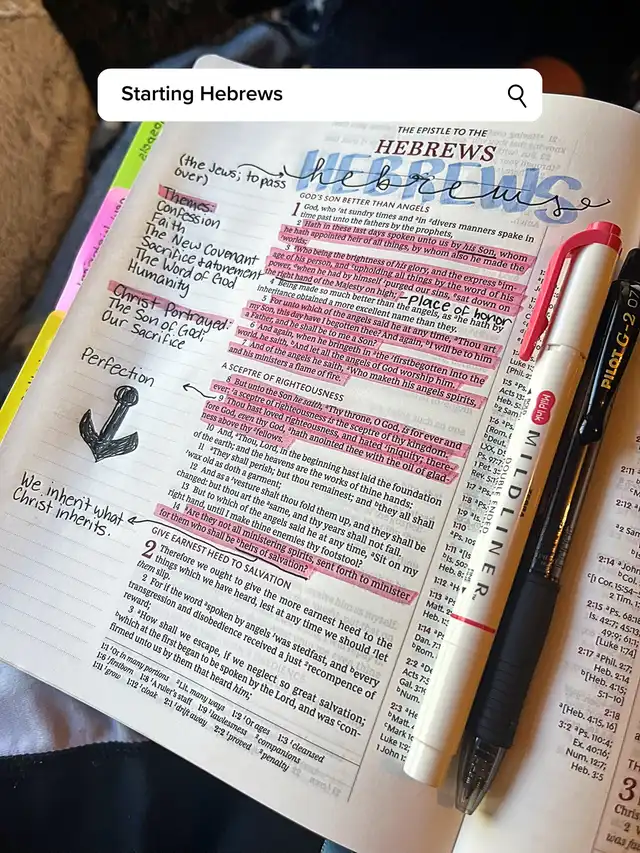 Starting Hebrews
THE EPISTLE TO THE
HEBREWS
HEBREWS
hebrews
(the Jews; to pass
over)
Themes:
Confession
Faith
The New Covenant
Sacrifice & atonement
The Word of God
Humanity
Christ Portrayed:
The Son of God;
Our Sacrifice
Perfection
We inherit what
Christ inherits.
GOD'S SON BETTER THAN ANGELS
1 God, who at sundry times and in divers manners spake in
time past unto the fathers by the prophets,
2 Hath in these last days spoken unto us by his Son, whom
he hath appointed heir of all things, by whom also he made the
worlds;
3 Who being the brightness of his glory, and the express im-
age of his person, and upholding all things by the word of his
power, when he had by himself purged our sins, sat down on
the right hand of the Majesty on high;
-Place of honor
4 Being made so much better than the angels, as he hath by
inheritance obtained a more excellent name than they.
5 For unto which of the angels said he at any time, Thou art
my Son, this day have I begotten thee? And again, I will be to him
a Father, and he shall be to me a Son?
6 And again, when he bringeth in the firstbegotten into the
world, he saith, And let all the angels of God worship him.
7 And of the angels he saith, Who maketh his angels spirits,
and his ministers a flame of fire.
A SCEPTRE OF RIGHTEOUSNESS
8 But unto the Son he saith, Thy throne, O God, is for ever and
ever: a sceptre of righteousness is the sceptre of thy kingdom.
9 Thou hast loved righteousness, and hated iniquity; there-
fore God, even thy God, hath anointed thee with the oil of glad-
ness above thy fellows.
10 And, Thou, Lord, in the beginning hast laid the foundation
of the earth; and the heavens are the works of thine hands:
11 They shall perish; but thou remainest; and they all shall
wax old as doth a garment;
12 And as a vesture shalt thou fold them up, and they shall be
changed: but thou art the same, and thy years shall not fail.
13 But to which of the angels said he at any time, Sit on my
right hand, until I make thine enemies thy footstool?
14 Are they not all ministering spirits, sent forth to minister
for them who shall be heirs of salvation?
GIVE EARNEST HEED TO SALVATION
2 Therefore we ought to give the more earnest heed to the
things which we have heard, lest at any time we should let
them slip.
2 For if the word spoken by angels was stedfast, and every
transgression and disobedience received a just recompence of
reward;
3 How shall we escape, if we neglect so great salvation;
which at the first began to be spoken by the Lord, and was con-
firmed unto us by them that heard him;
1:1 Or in many portions Lit. many ways 1:2 Or ages 1:3 cleansed
1:6 firstborn 1:8 A ruler's staff 1:9 lawlessness companions
1:11 grow 1:12 cloak 2:1 drift away 2:2 proved penalty
Mild ink
MILDLINER
DOUBLE ENDED
PILOT G-2
2:14
2:15
2:17
2:18
[Heb. 4:15, 16]
3:2 Ps. 110:4;
Ex. 40:16;
Num. 12:7;
Heb. 3:5
3